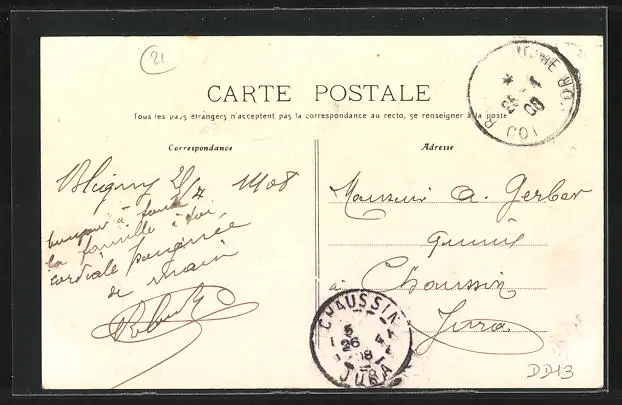 21
CARTE POSTALE
Tous les pays étrangers n'acceptent pas la correspondance au recto, se renseigner à la poste
Correspondance
Adresse
Bligny 25/7 1908
bonjour à toute
la famille à toi
cordiale poignée
de main
Monsieur A. Gerber
à Chaussin
Jura
CHAUSSIN
5
26
08
JURA
DD13